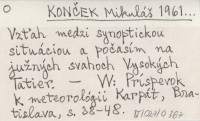 O
KONČEK Mikuláš 1961...
Vzťah medzi synoptickou
situáciou a počasím na
južných svahoch Vysokých
Tatier. — W: Príspevok
k meteorológii Karpát, Bra-
tislava, s. 38-48.